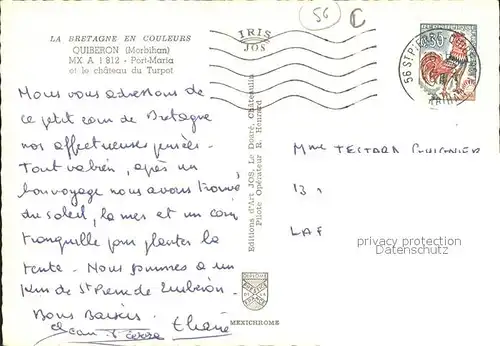 56
C
LA BRETAGNE EN COULEURS
QUIBERON (Morbihan)
MX A 1 812 - Port-Maria
et le château du Turpot
IRIS
JOS
56 ST PIERRE-QUIBERON
MORBIHAN
Nous vous adressons de
ce petit coin de Bretagne
nos affectueuses pensées.
Tout va bien, après un
bon voyage nous avons trouvé
du soleil, la mer et un coin
tranquille pour planter la
tente. Nous sommes à un
km de St Pierre de Quiberon.
Bons Baisers
Jean Pierre Eliane
Editions d'Art JOS, Le Doaré, Châteaulin
Pilote Opérateur R. Henrard
MEXICHROME
Mme TESTARD
13
LAF
privacy protection
Datenschutz